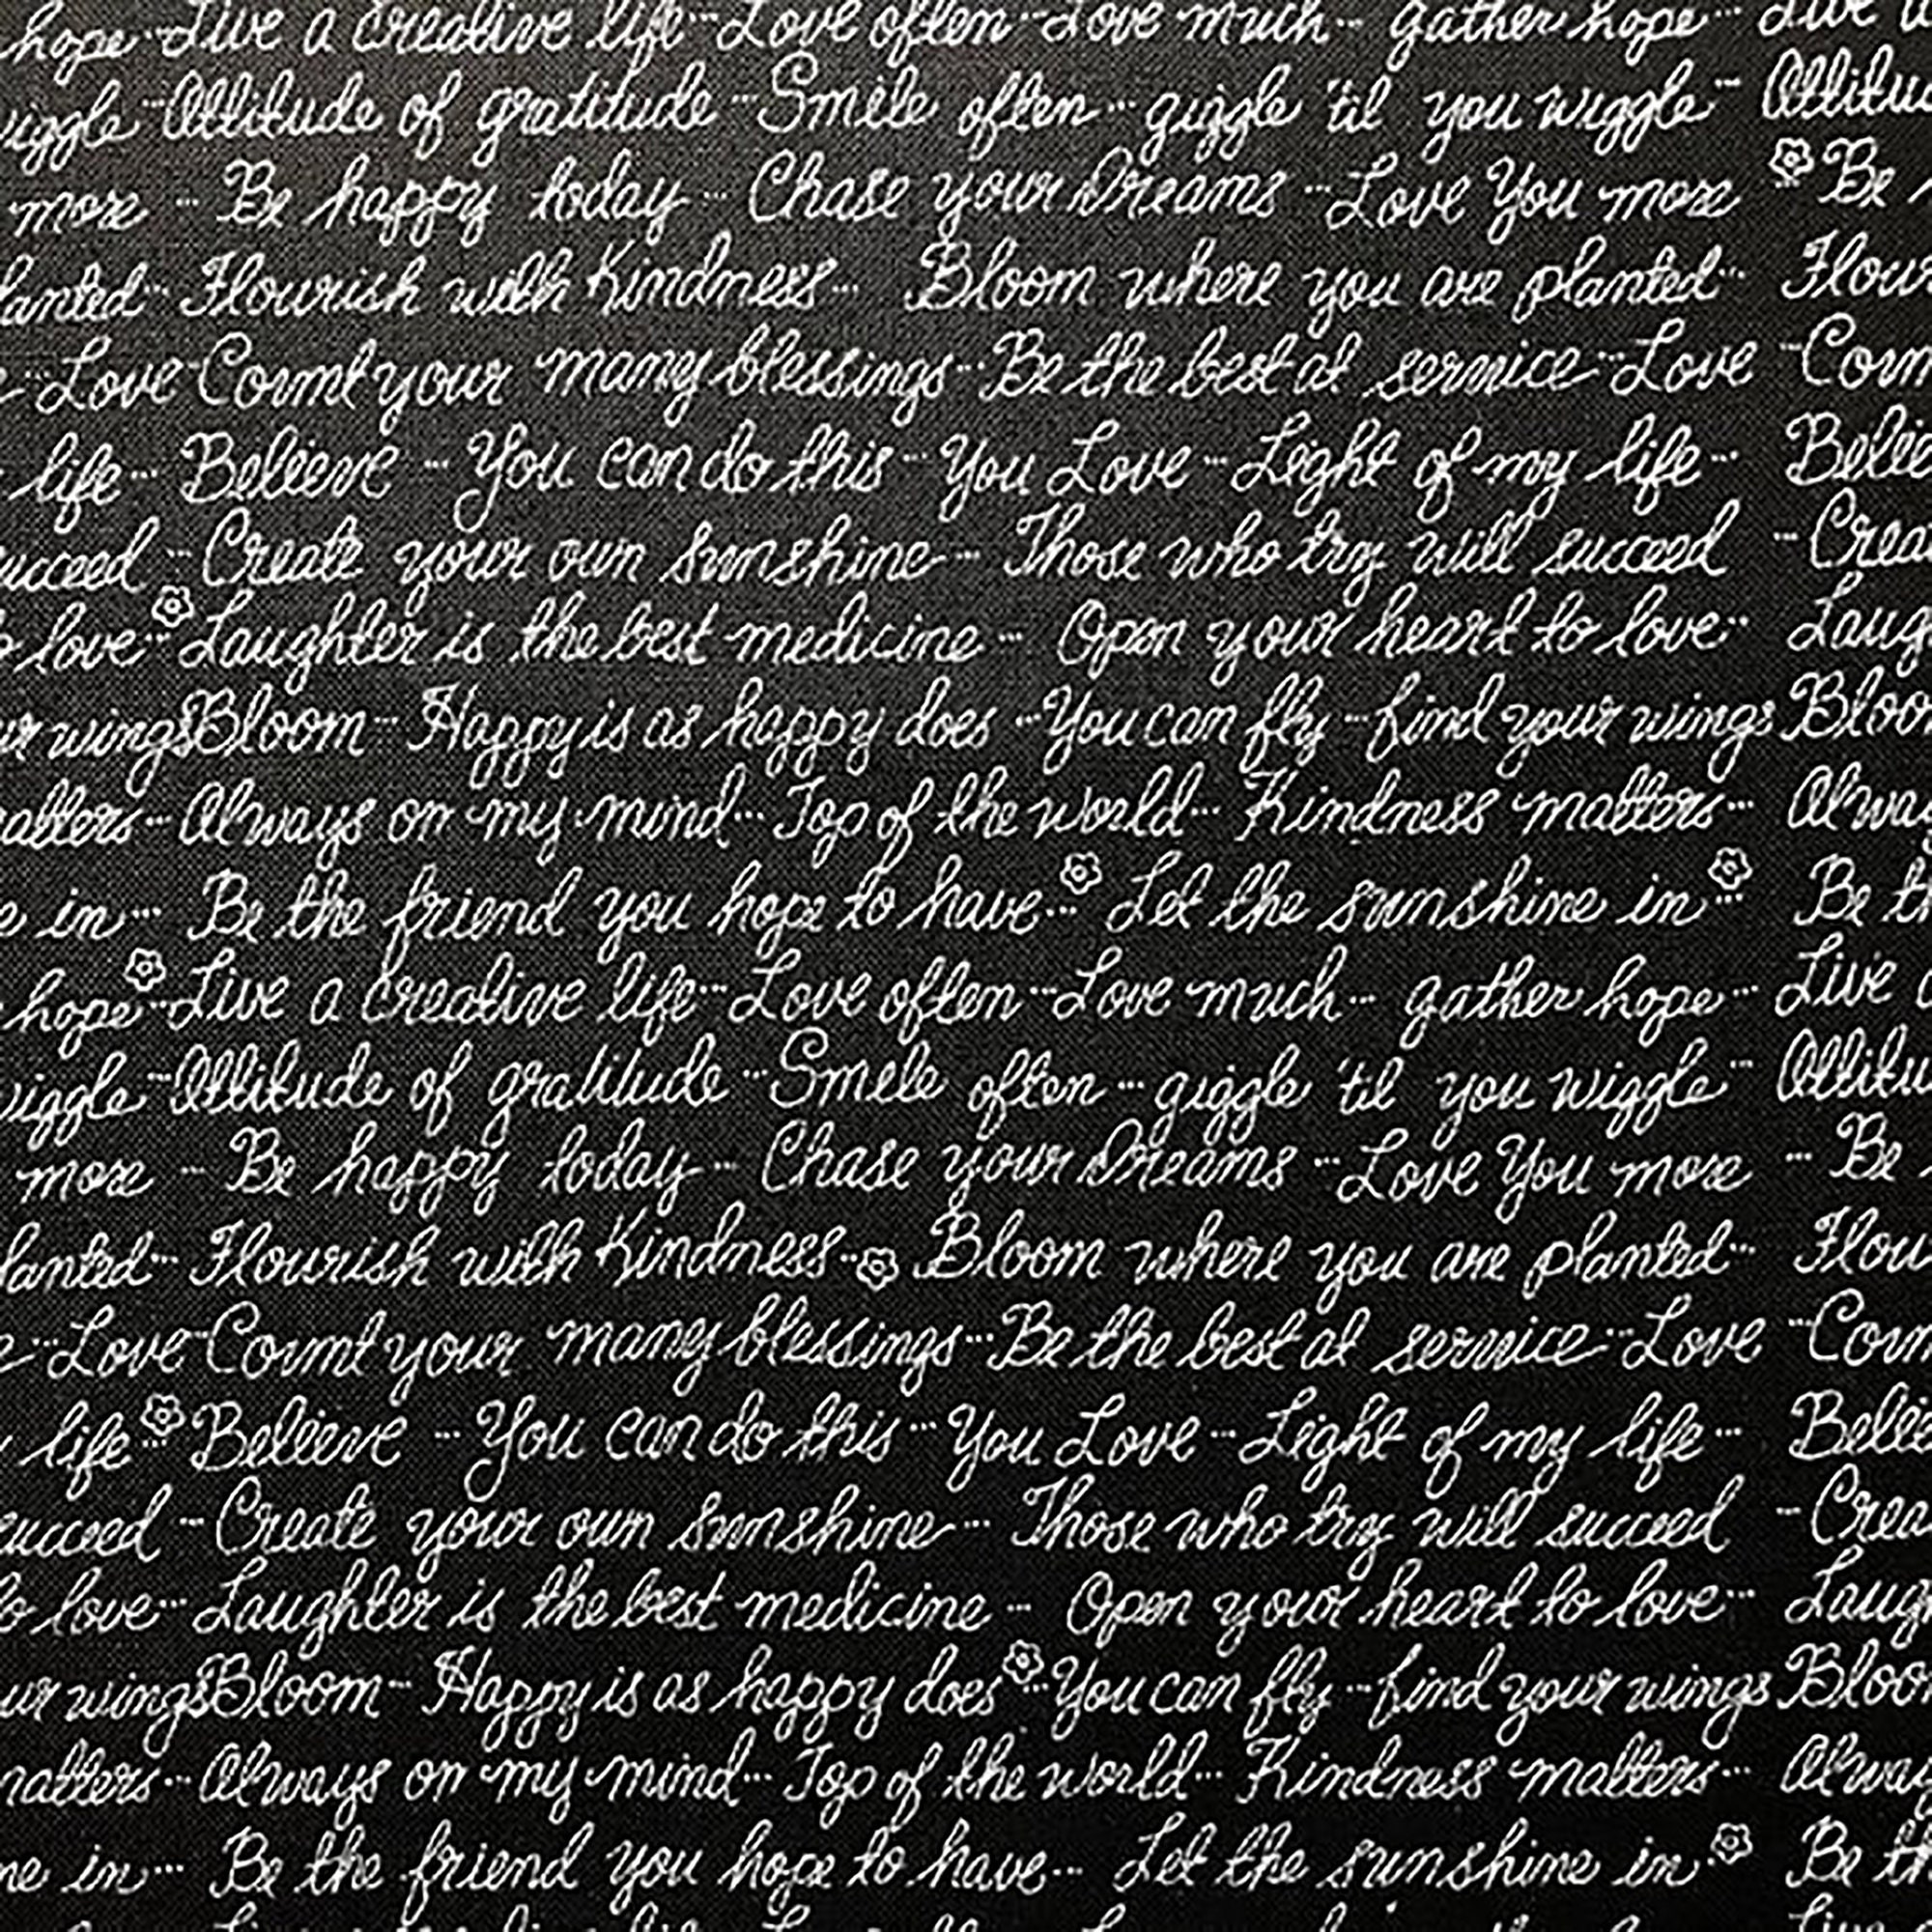 hope ... Live a creative life ... Love often ... Love much ... gather hope ... Live
wiggle ... Attitude of gratitude ... Smile often ... giggle 'til you wiggle ... Attitu
more ... Be happy today ... Chase your Dreams ... Love You more Be
lanted ... Flourish with Kindness ... Bloom where you are planted ... Flou
... Love ... Count your many blessings ... Be the best at service ... Love ... Coun
life ... Believe ... You can do this ... You Love ... Light of my life ... Belie
ucceed ... Create your own sunshine ... Those who try will succeed ... Crea
love ... Laughter is the best medicine ... Open your heart to love ... Laug
ur wings Bloom ... Happy is as happy does ... You can fly ... find your wings Bloo
atters ... Always on my mind ... Top of the world ... Kindness matters ... Alwa
in ... Be the friend you hope to have ... Let the sunshine in ... Be th
hope ... Live a creative life ... Love often ... Love much ... gather hope ... Live
iggle ... Attitude of gratitude ... Smile often ... giggle 'til you wiggle ... Attitu
more ... Be happy today ... Chase your Dreams ... Love You more ... Be
lanted ... Flourish with Kindness ... Bloom where you are planted ... Flou
... Love ... Count your many blessings ... Be the best at service ... Love ... Coun
life ... Believe ... You can do this ... You Love ... Light of my life ... Belie
ucceed ... Create your own sunshine ... Those who try will succeed ... Crea
to love ... Laughter is the best medicine ... Open your heart to love ... Laug
ur wings Bloom ... Happy is as happy does ... You can fly ... find your wings Bloo
atters ... Always on my mind ... Top of the world ... Kindness matters ... Alwa
ne in ... Be the friend you hope to have ... Let the sunshine in ... Be th